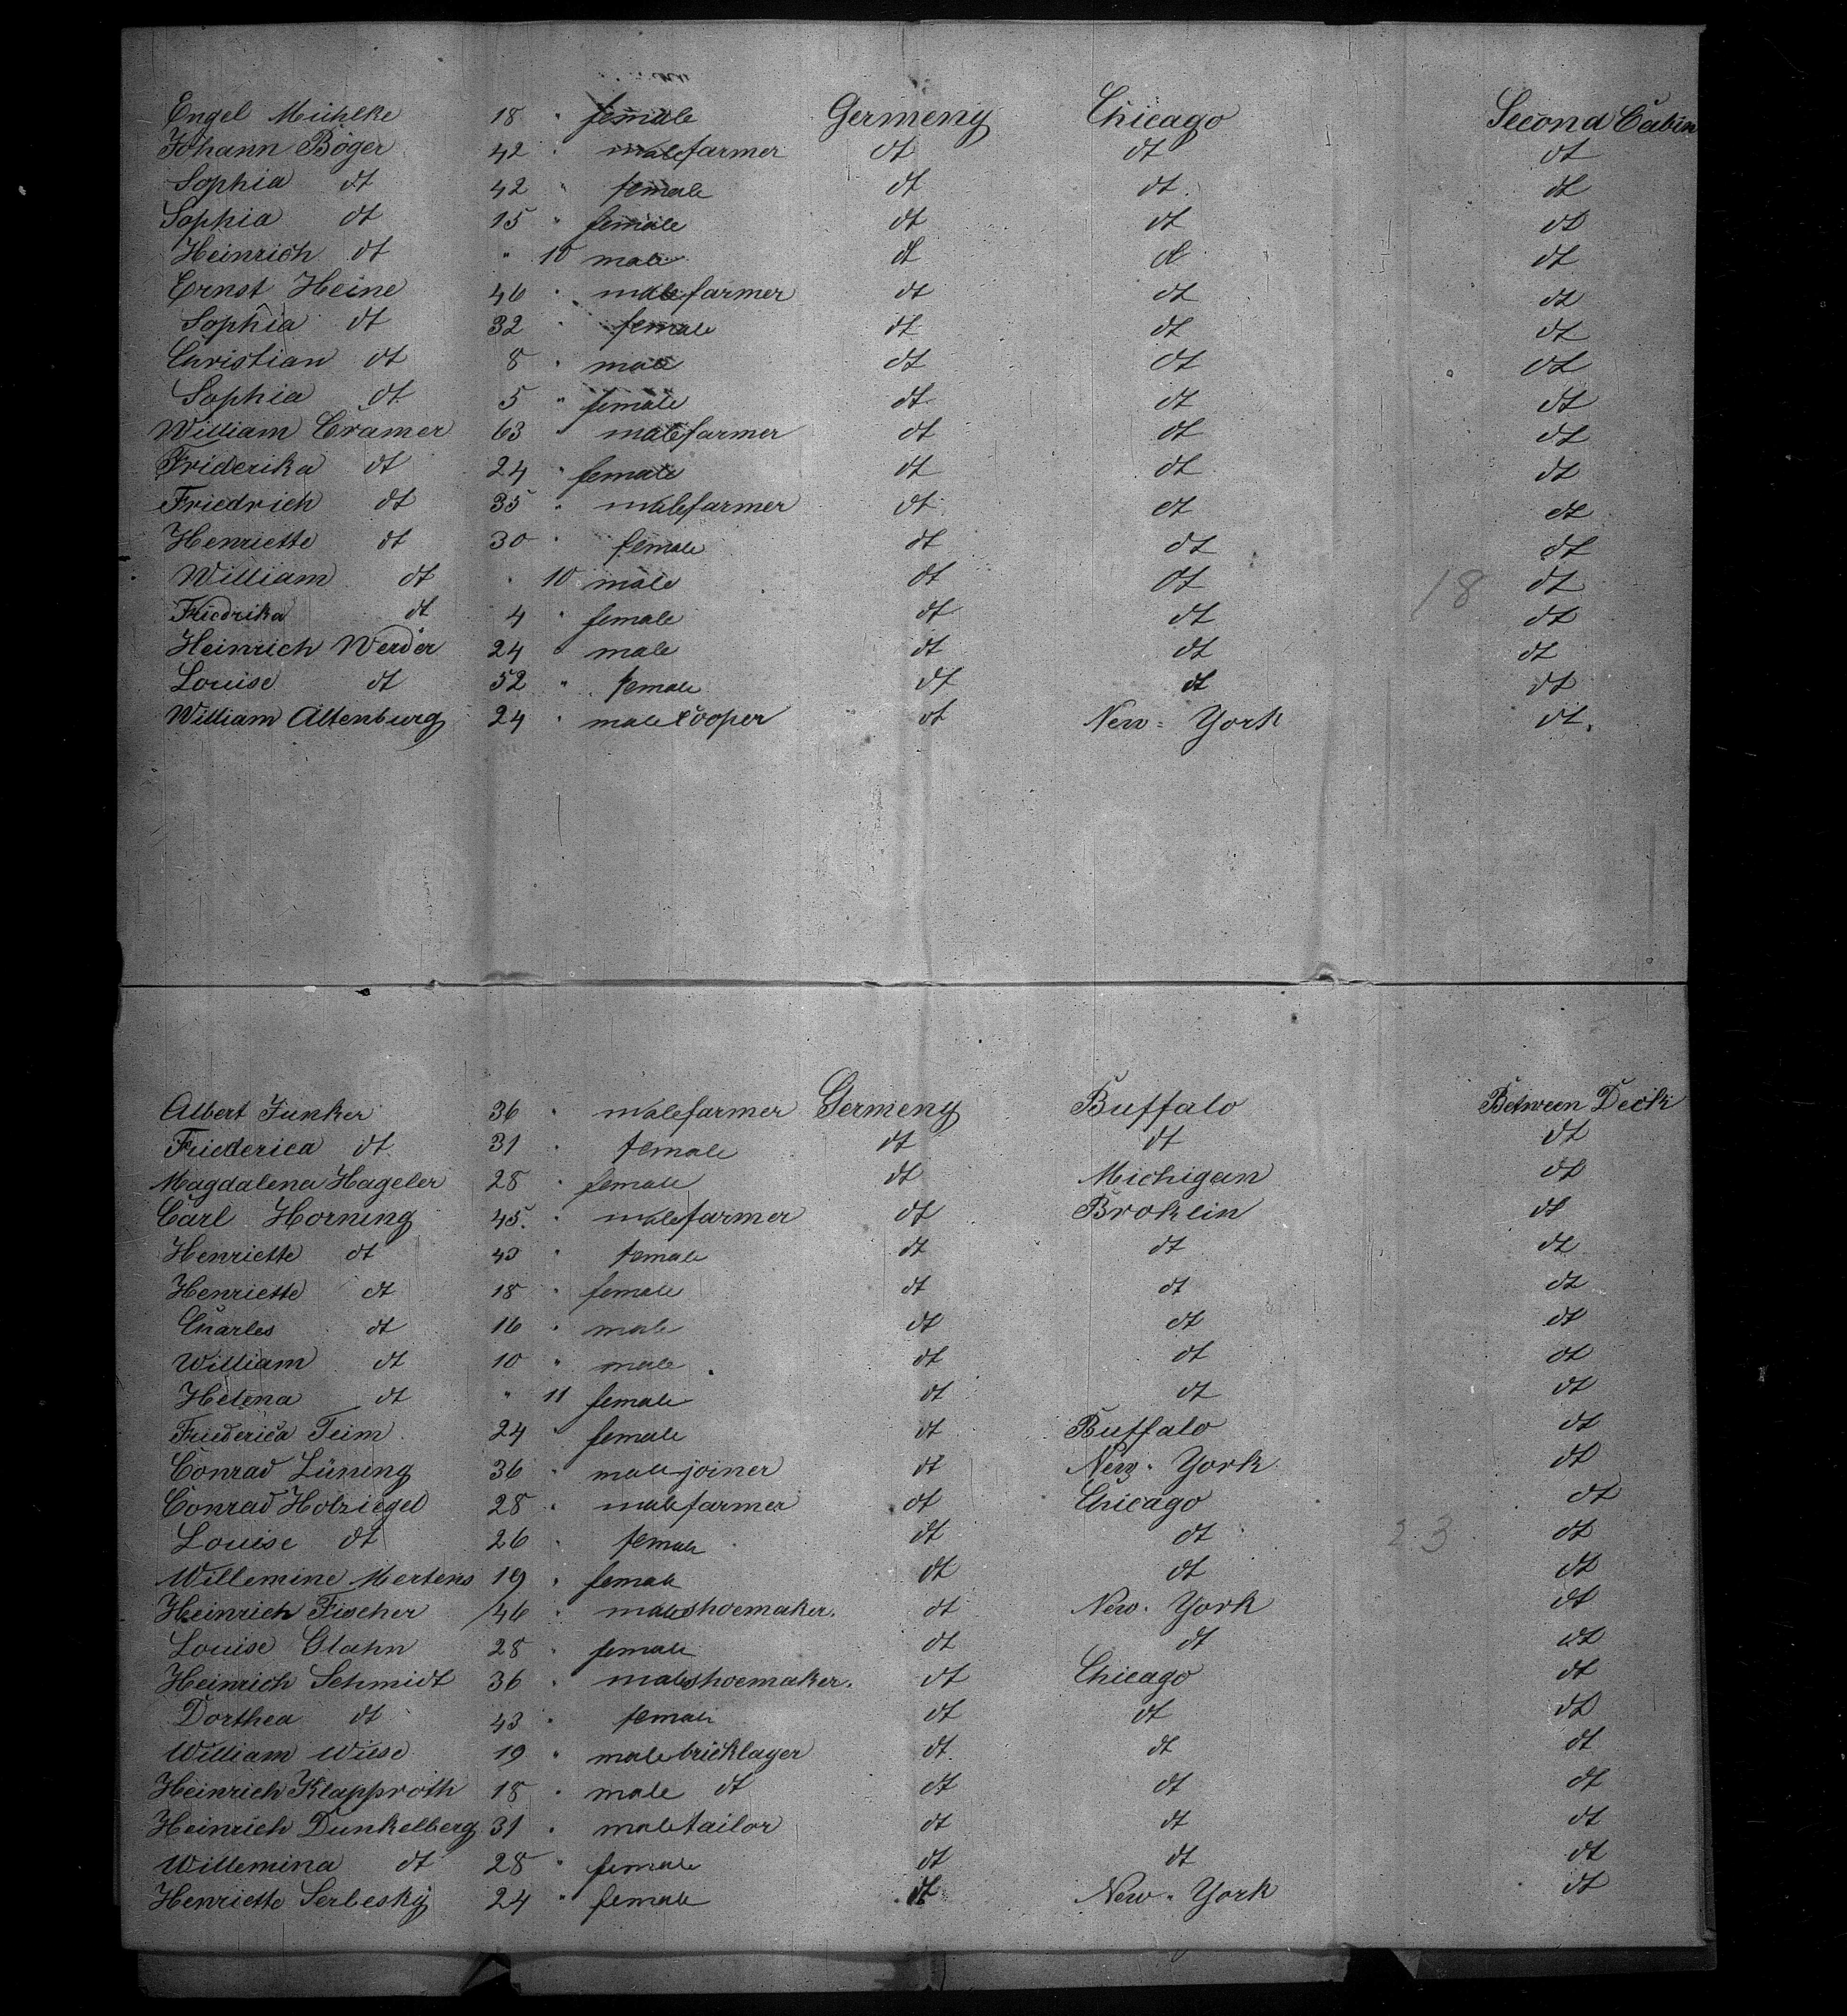 Engel Mühlke 18 " female Germeny Chicago Second Cabin
Johann Böger 42 " male farmer dt dt dt
Sophia dt 42 " female dt dt dt
Sophia dt 15 " female dt dt dt
Heinrich dt " 10 male dt dt dt
Ernst Heine 46 " male farmer dt dt dt
Sophia dt 32 " female dt dt dt
Christian dt 8 " male dt dt dt
Sophia dt 5 " female dt dt dt
William Cramer 63 " male farmer dt dt dt
Friderika dt 24 " female dt dt dt
Friedrich dt 35 " male farmer dt dt dt
Henriette dt 30 " female dt dt dt
William dt " 10 male dt dt 18 dt
Friedrika dt 4 " female dt dt dt
Heinrich Werder 24 " male dt dt dt
Louise dt 52 " female dt dt dt
William Altenburg 24 " male Cooper dt New-York dt.
Albert Junker 36 " male farmer Germeny Buffalo Between Deck
Friederica dt 31 " female dt dt dt
Magdalena Hageler 28 " female dt Michigan dt
Carl Horning 45. " male farmer dt Broklin dt
Henriette dt 43 " female dt dt dt
Henriette dt 18 " female dt dt dt
Charles dt 16 " male dt dt dt
William dt 10 " male dt dt dt
Helena dt " 11 female dt dt dt
Friederica Teim 24 " female dt Buffalo dt
Conrad Lüning 36 " male joiner dt New-York dt
Conrad Holziegel 28 " male farmer dt Chicago dt
Louise dt 26 " female dt dt 23 dt
Willemine Mertens 19 " female dt dt dt
Heinrich Fischer 46 " male shoemaker. dt New-York dt
Louise Glahn 28 " female dt dt dt
Heinrich Schmidt 36 " male shoemaker. dt Chicago dt
Dorthea dt 43 " female dt dt dt
William Wiese 19 " male bricklager dt dt dt
Heinrich Klapproth 18 " male dt dt dt dt
Heinrich Dunkelberg 31 " male tailor dt dt dt
Willemina dt 28 " female dt dt dt
Henriette Serbesky 24 " female dt New-York dt